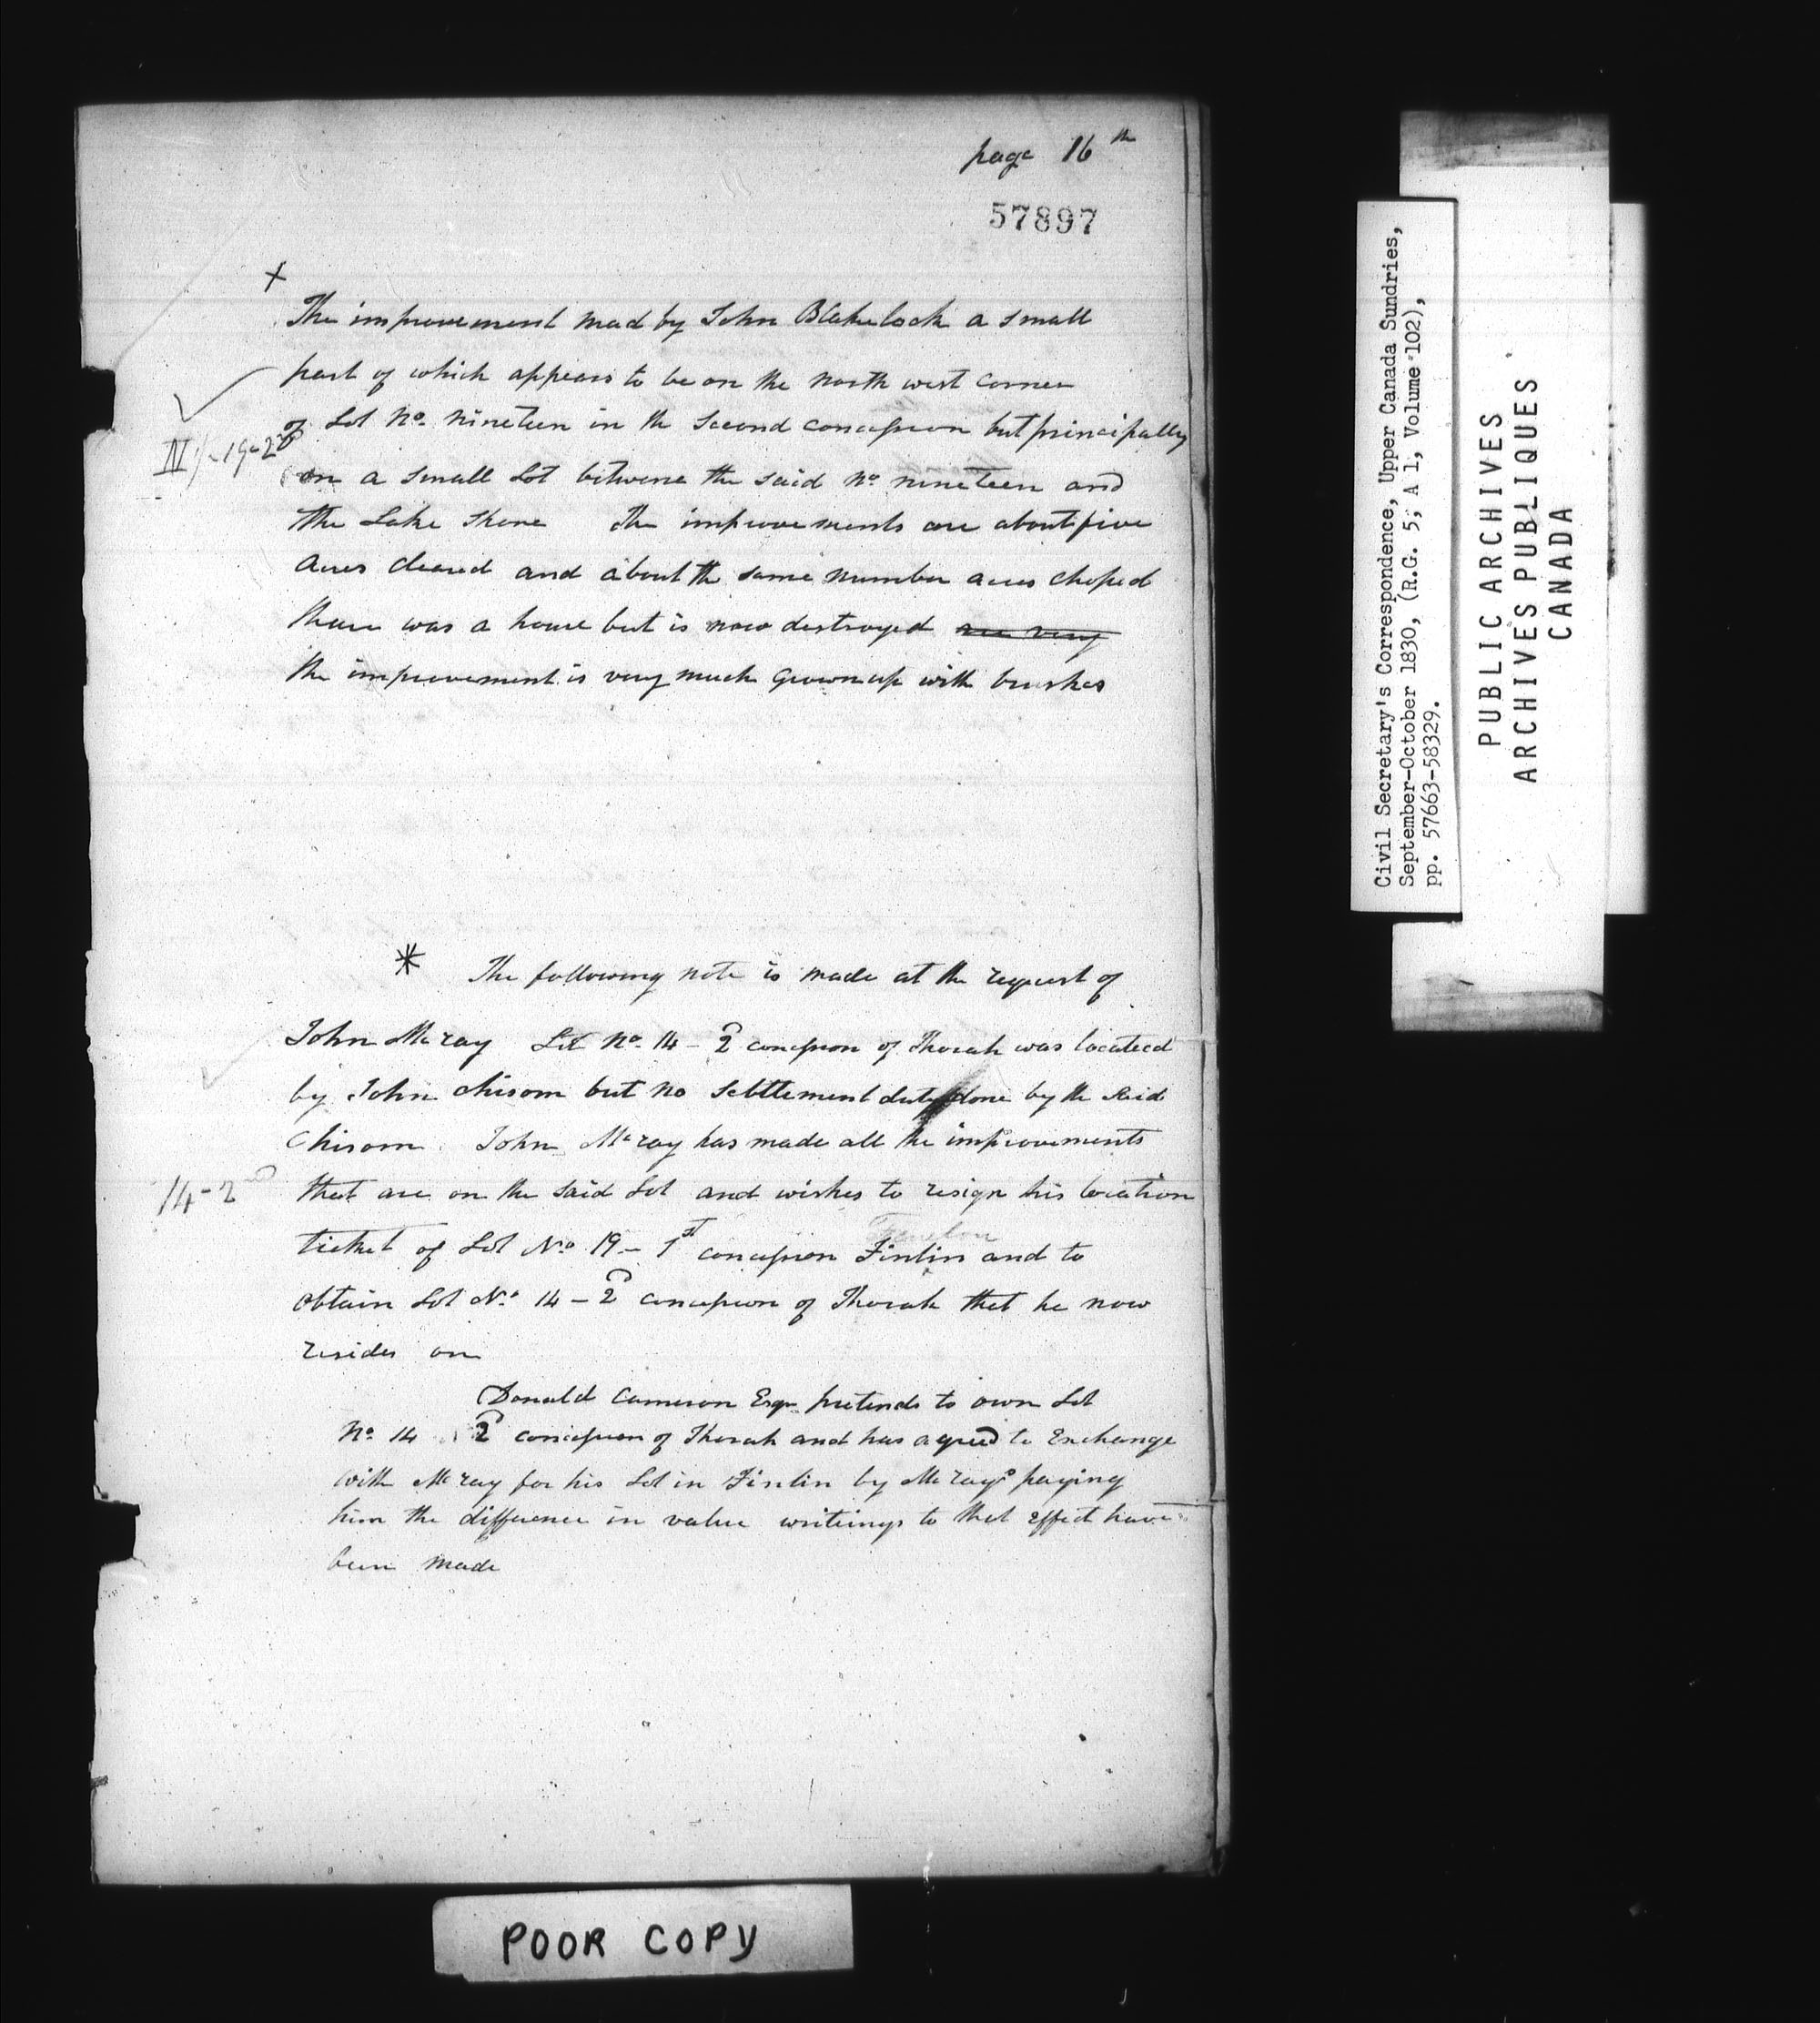 page 16th
57897
+
The improvement mad by John Blakelock a small
part of which appears to be on the north west corner
of Lot No. nineteen in the second concession but principally
IV 1/2 19-2d
on a small Lot betwene the said No. nineteen and
the Lake Shore The improvements are about five
acres cleared and about the same number acres choped
thare was a house but is now destroyed are very
the improvement is very much grown up with brushes
* The following note is made at the request of
John McRay Lot No. 14 - 2d concession of Thorah was located
by John Chisom but no settlement duty done by the said
Chisom John McRay has made all the improvements
14-2nd
that are on the said Lot and wishes to resign his location
Fenelon
ticket of Lot No. 19 - 1st concession Finlin and to
obtain Lot No. 14 - 2d concession of Thorah that he now
resides on
Donald Cameron Esqr pretends to own Lot
No. 14 2d concession of Thorah and has agreed to Exchange
with McRay for his Lot in Finlin by McRays paying
him the difference in value writings to that effect have
been made
Civil Secretary's Correspondence, Upper Canada Sundries,
September-October 1830, (R.G. 5, A 1, Volume 102),
pp. 57663-58329.
PUBLIC ARCHIVES
ARCHIVES PUBLIQUES
CANADA
POOR COPY